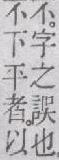 不。字之誤也
不下平者。以